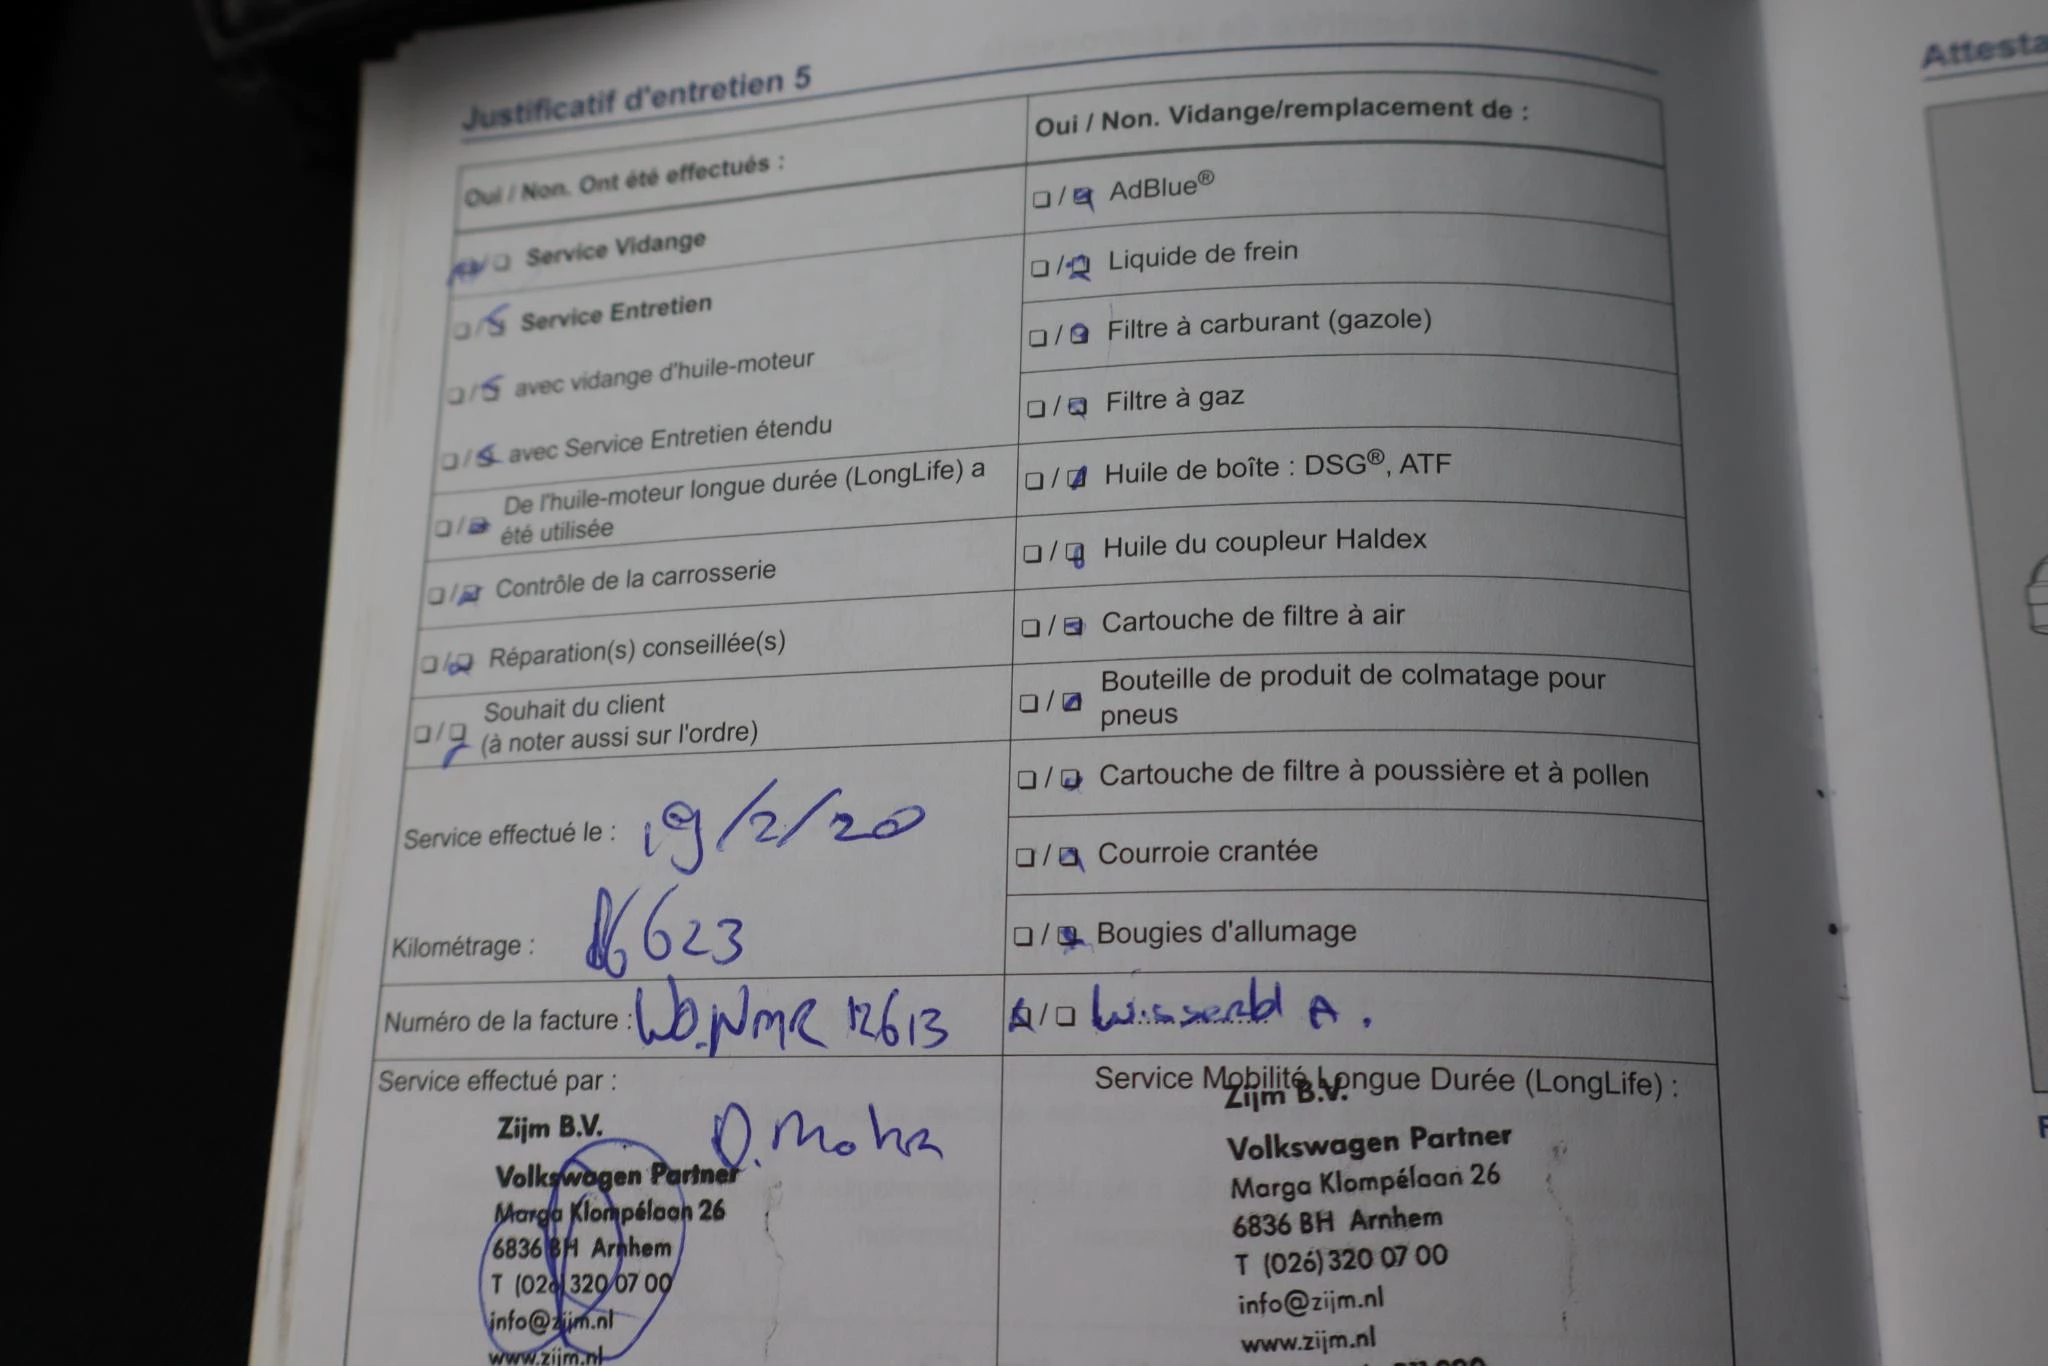 Justificatif d'entretien 5
Oui / Non. Ont été effectués :
Service Vidange
Service Entretien
avec vidange d'huile-moteur
avec Service Entretien étendu
De l'huile-moteur longue durée (LongLife) a
été utilisée
Contrôle de la carrosserie
Réparation(s) conseillée(s)
Souhait du client
(à noter aussi sur l'ordre)
Service effectué le : 19/2/20
Kilométrage :
Numéro de la facture : 12613
Service effectué par :
Zijm B.V.
Volkswagen Partner
Marga Klompélaan 26
6836 BH Arnhem
T (026) 320 07 00
info@zijm.nl
www.zijm.nl
Oui / Non. Vidange/remplacement de :
AdBlue®
Liquide de frein
Filtre à carburant (gazole)
Filtre à gaz
Huile de boîte : DSG®, ATF
Huile du coupleur Haldex
Cartouche de filtre à air
Bouteille de produit de colmatage pour
pneus
Cartouche de filtre à poussière et à pollen
Courroie crantée
Bougies d'allumage
Service Mobilité Longue Durée (LongLife) :
Zijm B.V.
Volkswagen Partner
Marga Klompélaan 26
6836 BH Arnhem
T (026) 320 07 00
info@zijm.nl
www.zijm.nl
Attesta